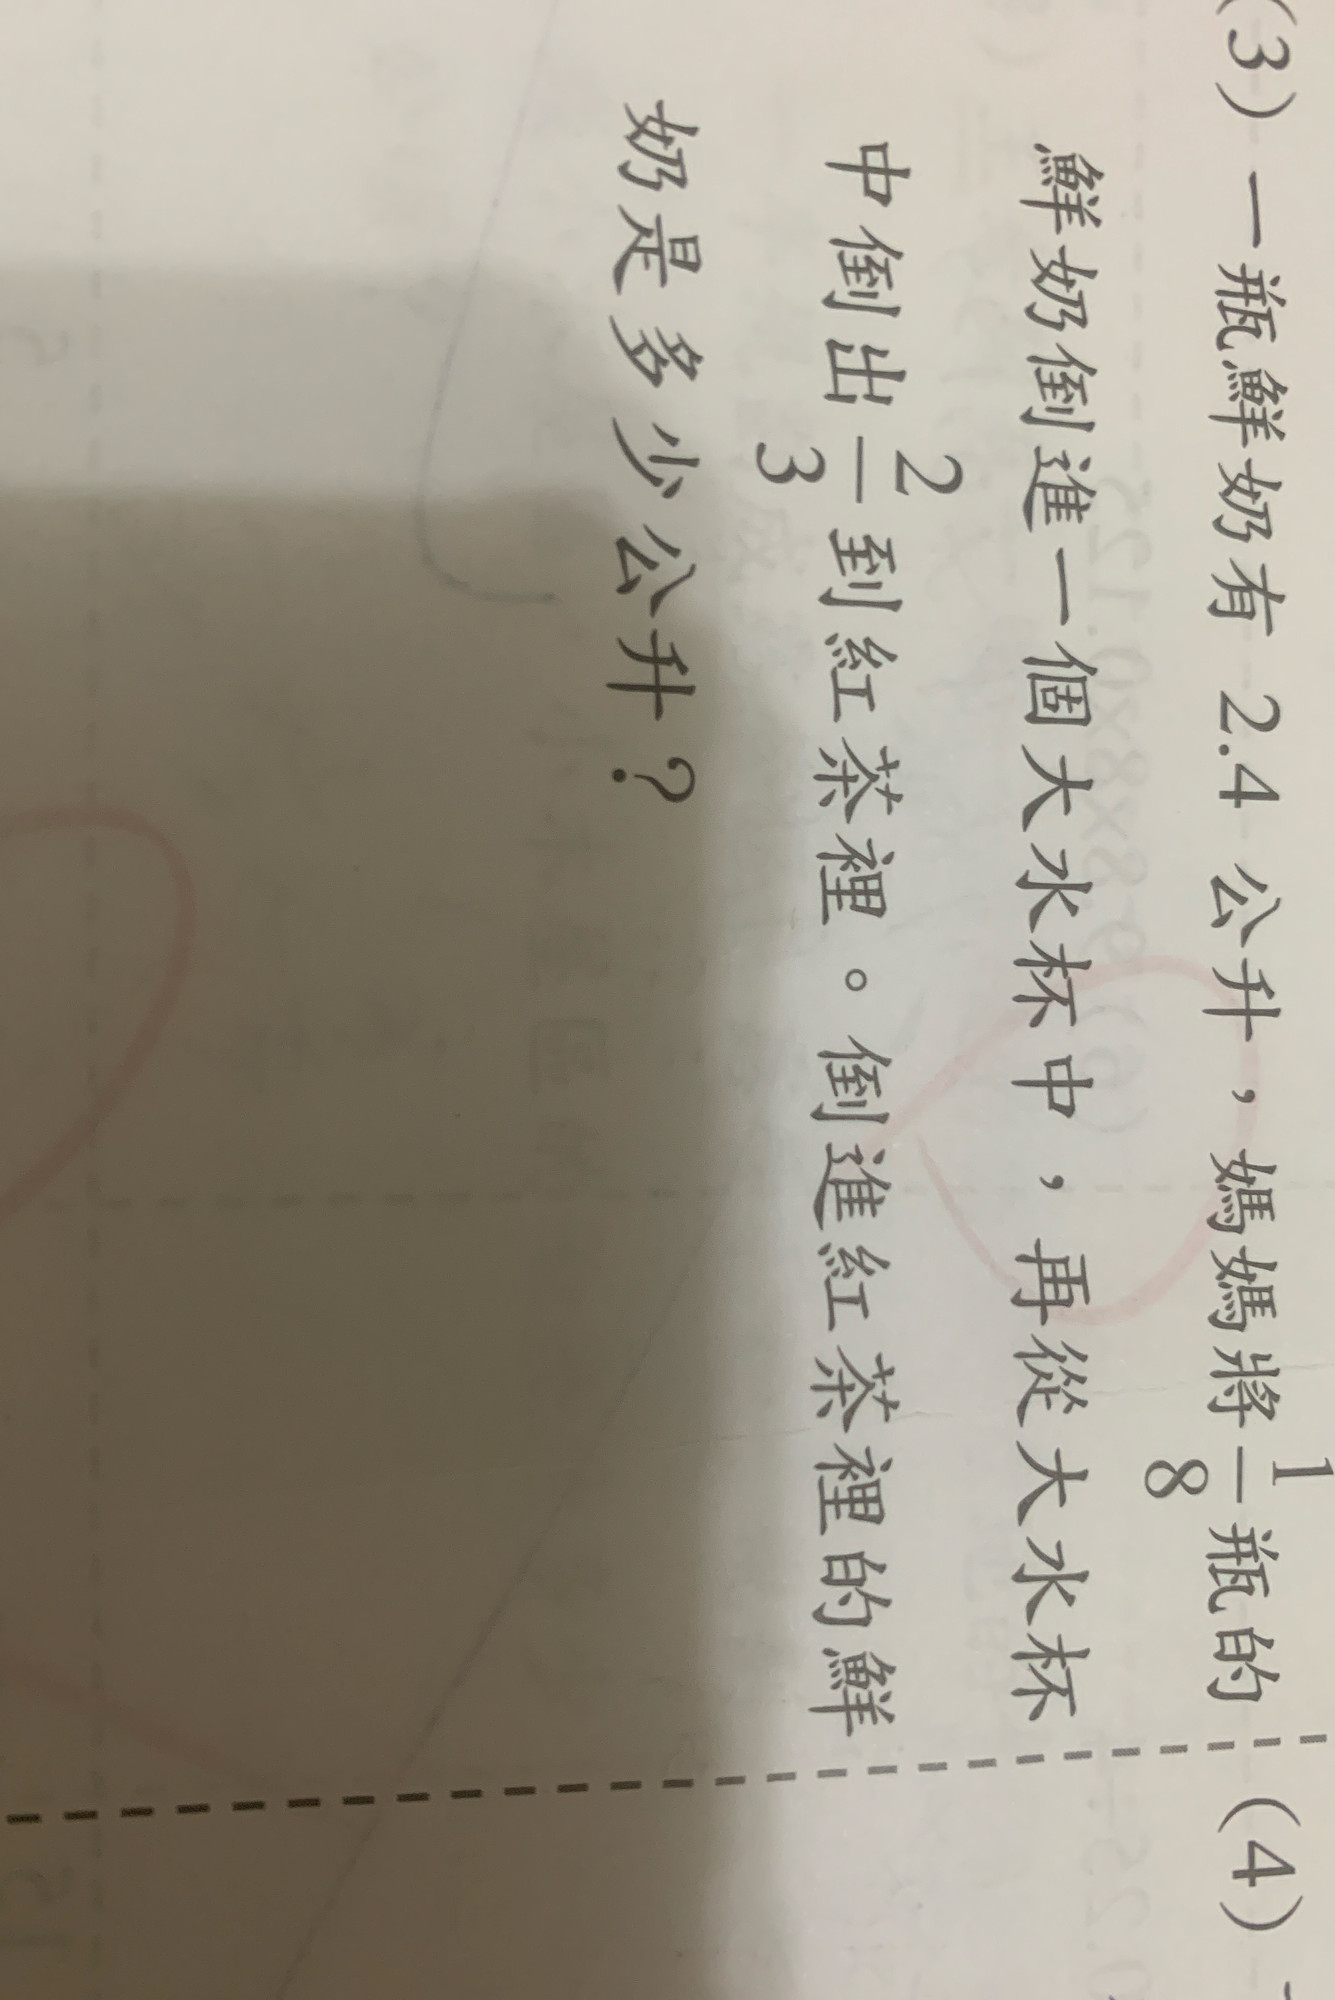 (3) 一瓶鮮奶有 2.4 公升，媽媽將 1/8 瓶的
鮮奶倒進一個大水杯中，再從大水杯
中倒出 2/3 到紅茶裡。倒進紅茶裡的鮮
奶是多少公升？
(4)